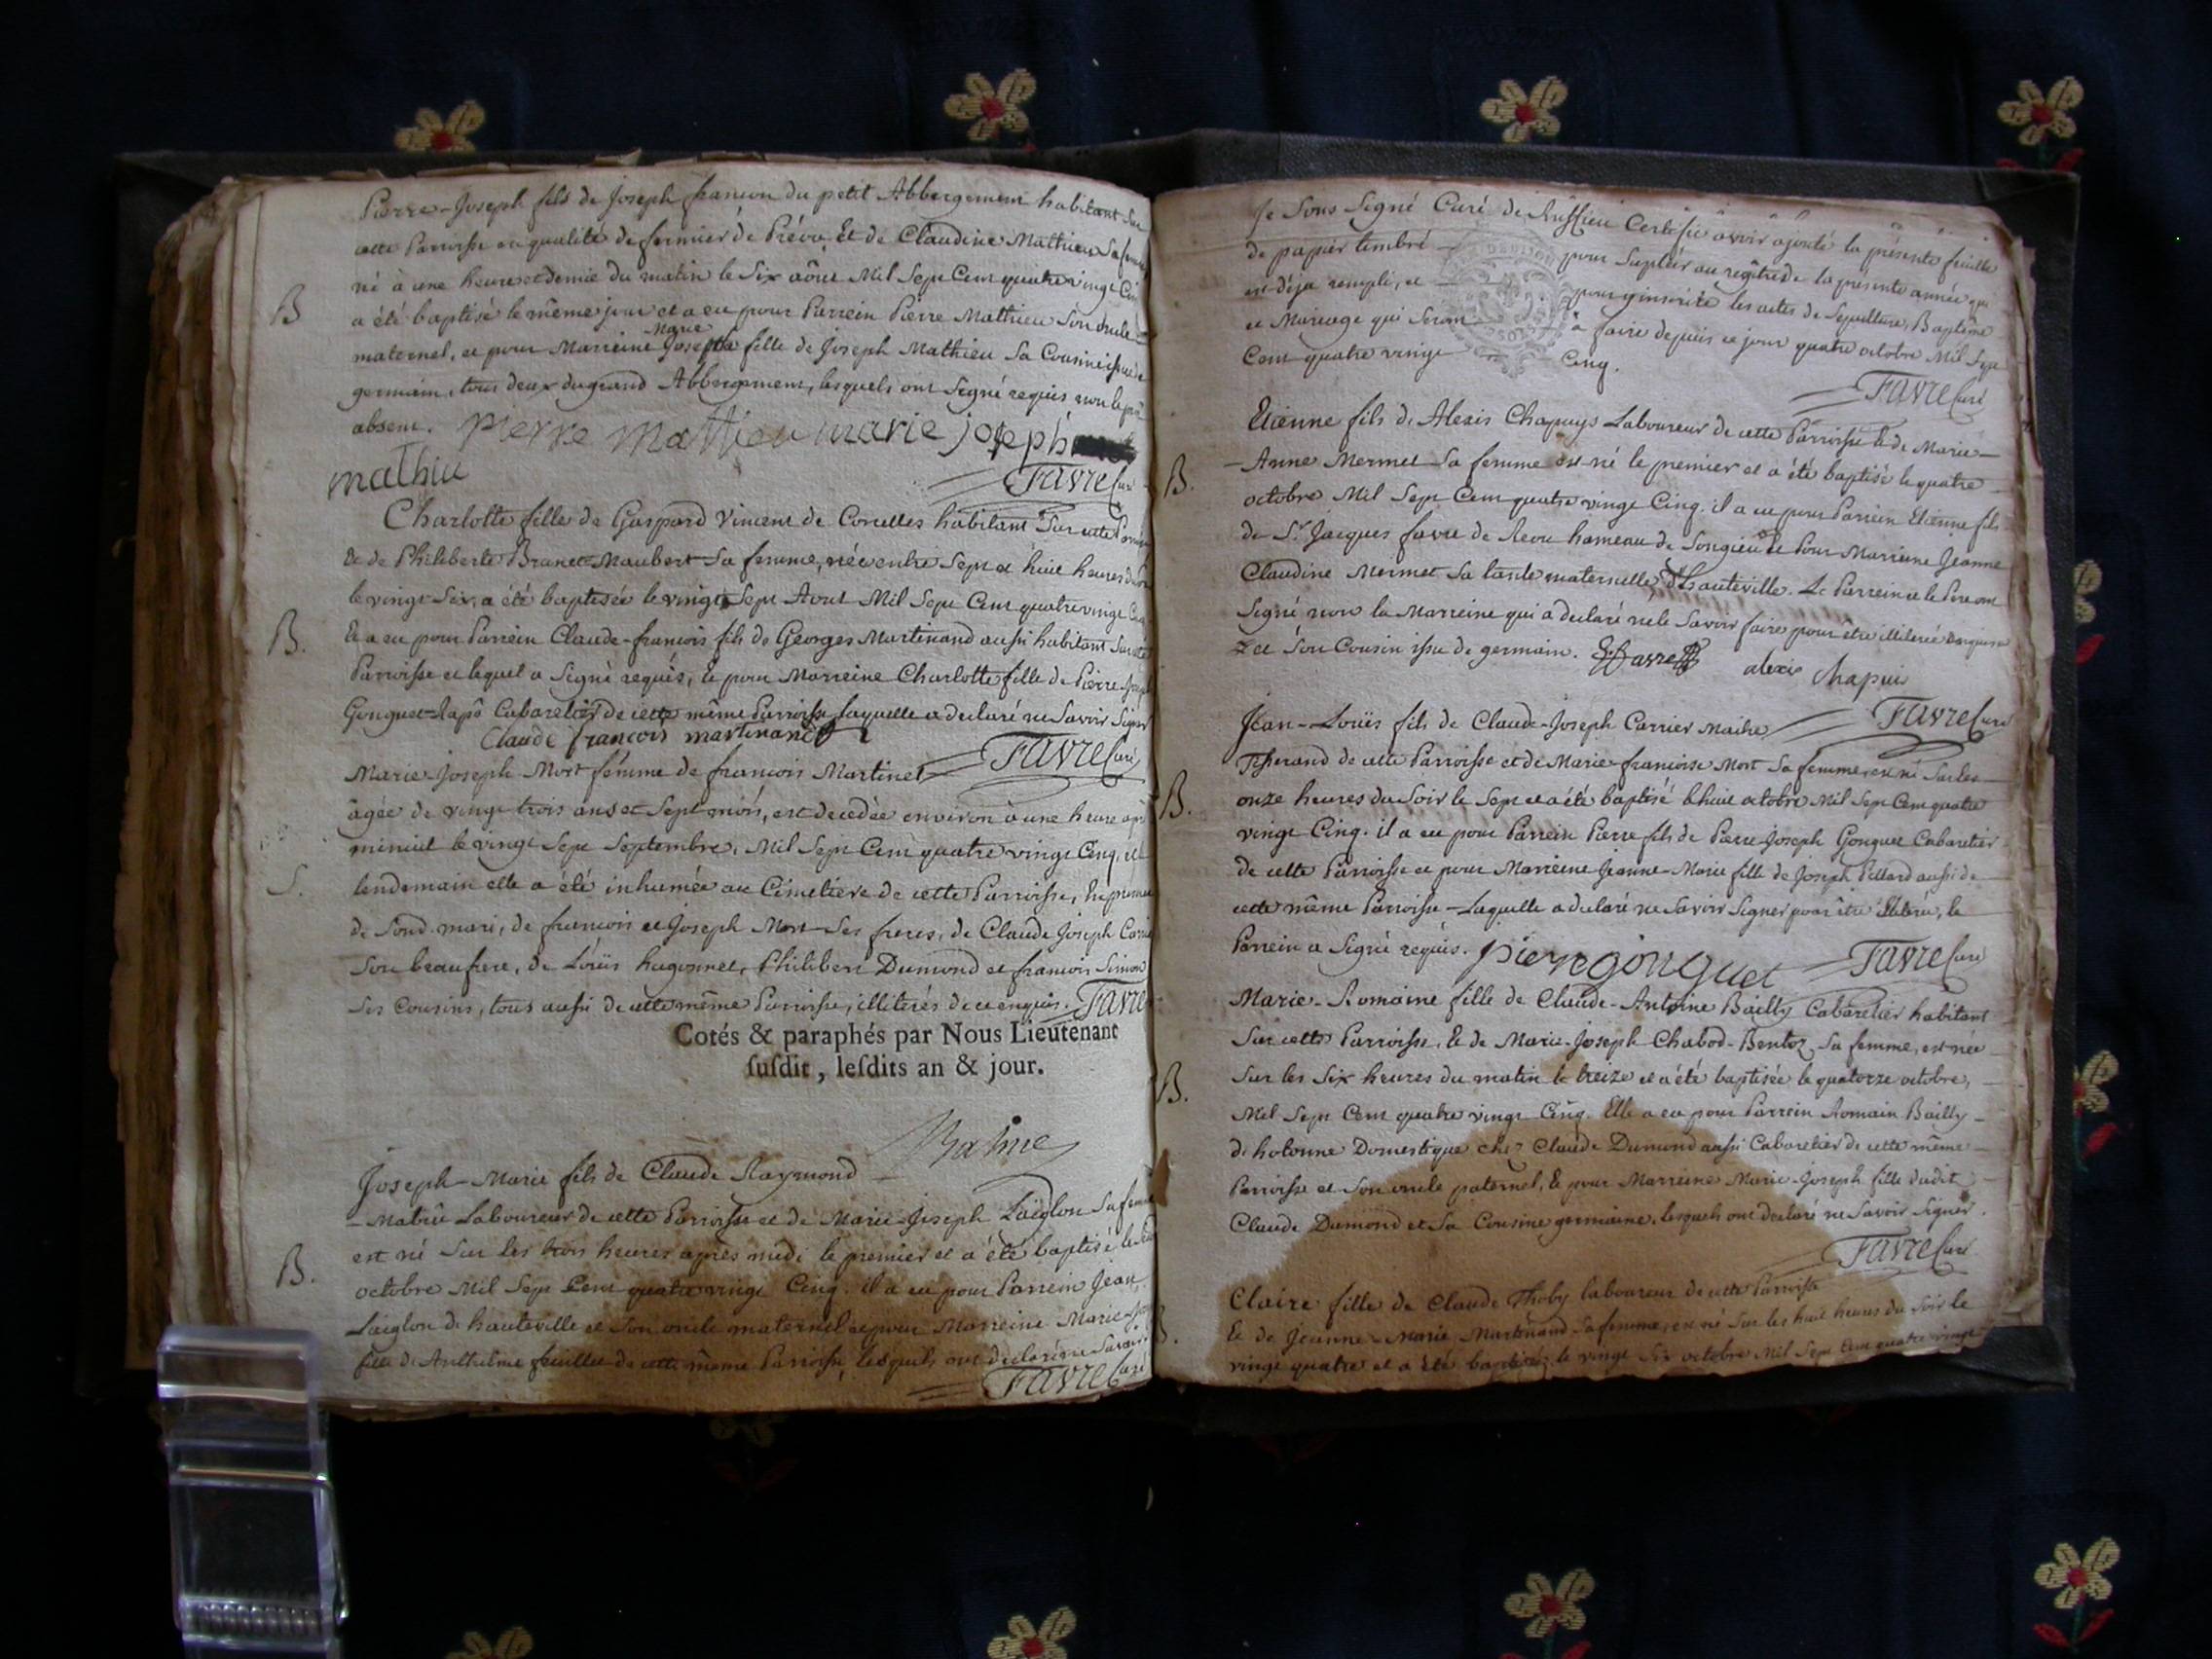 Pierre-Joseph fils de Joseph francon du petit Abbergement habitant sur
cette Parroisse en qualité de fermier de Prévo, Et de Claudine Mathieu sa femme
né à une heure et demie du matin le Six aôut Mil Sept Cent quatre vingt Cinq
B a été baptisé le même jour et a eu pour Parrein Pierre Mathieu Son oncle
maternel, et pour Marreine Marie Josephte fille de Joseph Mathieu Sa Cousine issue de
germain, tous deux du grand Abbergement, lesquels ont Signé requis non le père
absent. pierre mathieu marie joseph
mathiu
FAVRE Curé
Charlotte fille de Gaspard Vincent de Corcelles habitant Sur cette Parroisse
Et de Philiberte Brunet-Maubert Sa femme, née entre Sept et huit heures du
le vingt Six, a été baptisée le vingt Sept Aout Mil Sept Cent quatre vingt Cinq
B. Et a eu pour Parrein Claude-francois fils de Georges Martinand aussi habitant Sur cette
Parroisse et lequel a Signé requis, Et pour Marreine Charlotte fille de Pierre Joseph
Gonguet-Papô Cabaretier de cette même Parroisse laquelle a declaré ne Savoir Signer
Claude francois martinand
FAVRE Curé
Marie-Joseph Mort femme de francois Martinet
âgée de vingt trois ans et Sept mois, est decedée environ à une heure après
minuit le vingt Sept Septembre, Mil Sept Cent quatre vingt Cinq, et le
S. lendemain elle a été inhumée au Cimetière de cette Parroisse, En présence
de Sond. mari, de francois et Joseph Mort Ses freres, de Claude Joseph Carrier
Son beau frere, de Loüis hugonnet, Philibert Dumond et francois Simon
Ses Cousins, tous aussi de cette même Parroisse, illiterés de ce enquis. FAVRE
Cotés & paraphés par Nous Lieutenant
susdit, lesdits an & jour.
Joseph-Marie fils de Claude Raymond
-Mathieu Laboureur de cette Parroisse et de Marie-Joseph Laiglon Sa femme
est né Sur les trois heures après midi le premier et a été baptisé le
B. octobre Mil Sept Cent quatre vingt Cinq. il a eu pour Parrein Jean
Laiglon de hauteville et Son oncle maternel et pour Marreine Marie-
fille de Anthelme feuillet de cette même Parroisse, lesquels ont declaré ne Savoir
FAVRE Curé
Je Sous Signé Curé de Ruffieu Certifie avoir ajouté la présente feuille
de papier timbré pour Supléer au regître de la présente année qui
est déja rempli, et pour y inscrire les actes de Sepulture, Baptême
et Mariage qui Seront à faire depuis ce jour quatre octobre Mil Sept
Cent quatre vingt Cinq.
FAVRE Curé
Etienne fils de Alexis Chapuys Laboureur de cette Parroisse Et de Marie-
-Anne Mermet Sa femme est né le premier et a été baptisé le quatre
B. octobre Mil Sept Cent quatre vingt Cinq. il a eu pour Parrein Etienne fils
de Sr. Jacques favre de hameau de Songieu Et Pour Marreine Jeanne
Claudine Mermet Sa tante maternelle d'hauteville. Le Parrein et le Pere ont
Signé non la Marreine qui a declaré ne le Savoir faire pour être illiterée
et Son Cousin issu de germain. E favre alexis Chapuis
FAVRE Curé
Jean-Loüis fils de Claude-Joseph Carrier Maître
Tisserand de cette Parroisse et de Marie-francoise Mort Sa femme, est né Sur les
B. onze heures du Soir le Sept et a été baptisé le huit octobre Mil Sept Cent quatre
vingt Cinq. il a eu pour Parrein Pierre fils de Pierre-Joseph Gonguet Cabaretier
de cette Parroisse et pour Marreine Jeanne-Marie fille de Joseph Pillard aussi de
cette même Parroisse Laquelle a declaré ne Savoir Signer pour être illiterée, le
Parrein a Signé requis. pierre gonguet FAVRE Curé
Marie-Romaine fille de Claude-Antoine Bailly Cabaretier habitant
Sur cette Parroisse, Et de Marie-Joseph Chabod-Bentoz Sa femme, est née
B. Sur les Six heures du matin le treize et a été baptisée le quatorze octobre,
Mil Sept Cent quatre vingt Cinq. Elle a eu pour Parrein Romain Bailly
de hotonne Domestique chez Claude Dumond aussi Cabaretier de cette même
Parroisse et Son oncle paternel, Et pour Marreine Marie-Joseph fille dudit
Claude Dumond et Sa Cousine germaine, lesquels ont declaré ne Savoir Signer.
FAVRE Curé
Claire fille de Claude Thoby laboureur de cette Parroisse
Et de Jeanne-Marie Martinand Sa femme, est né Sur les huit heures du Soir le
vingt quatre et a été baptisée le vingt Six octobre Mil Sept Cent quatre vingt